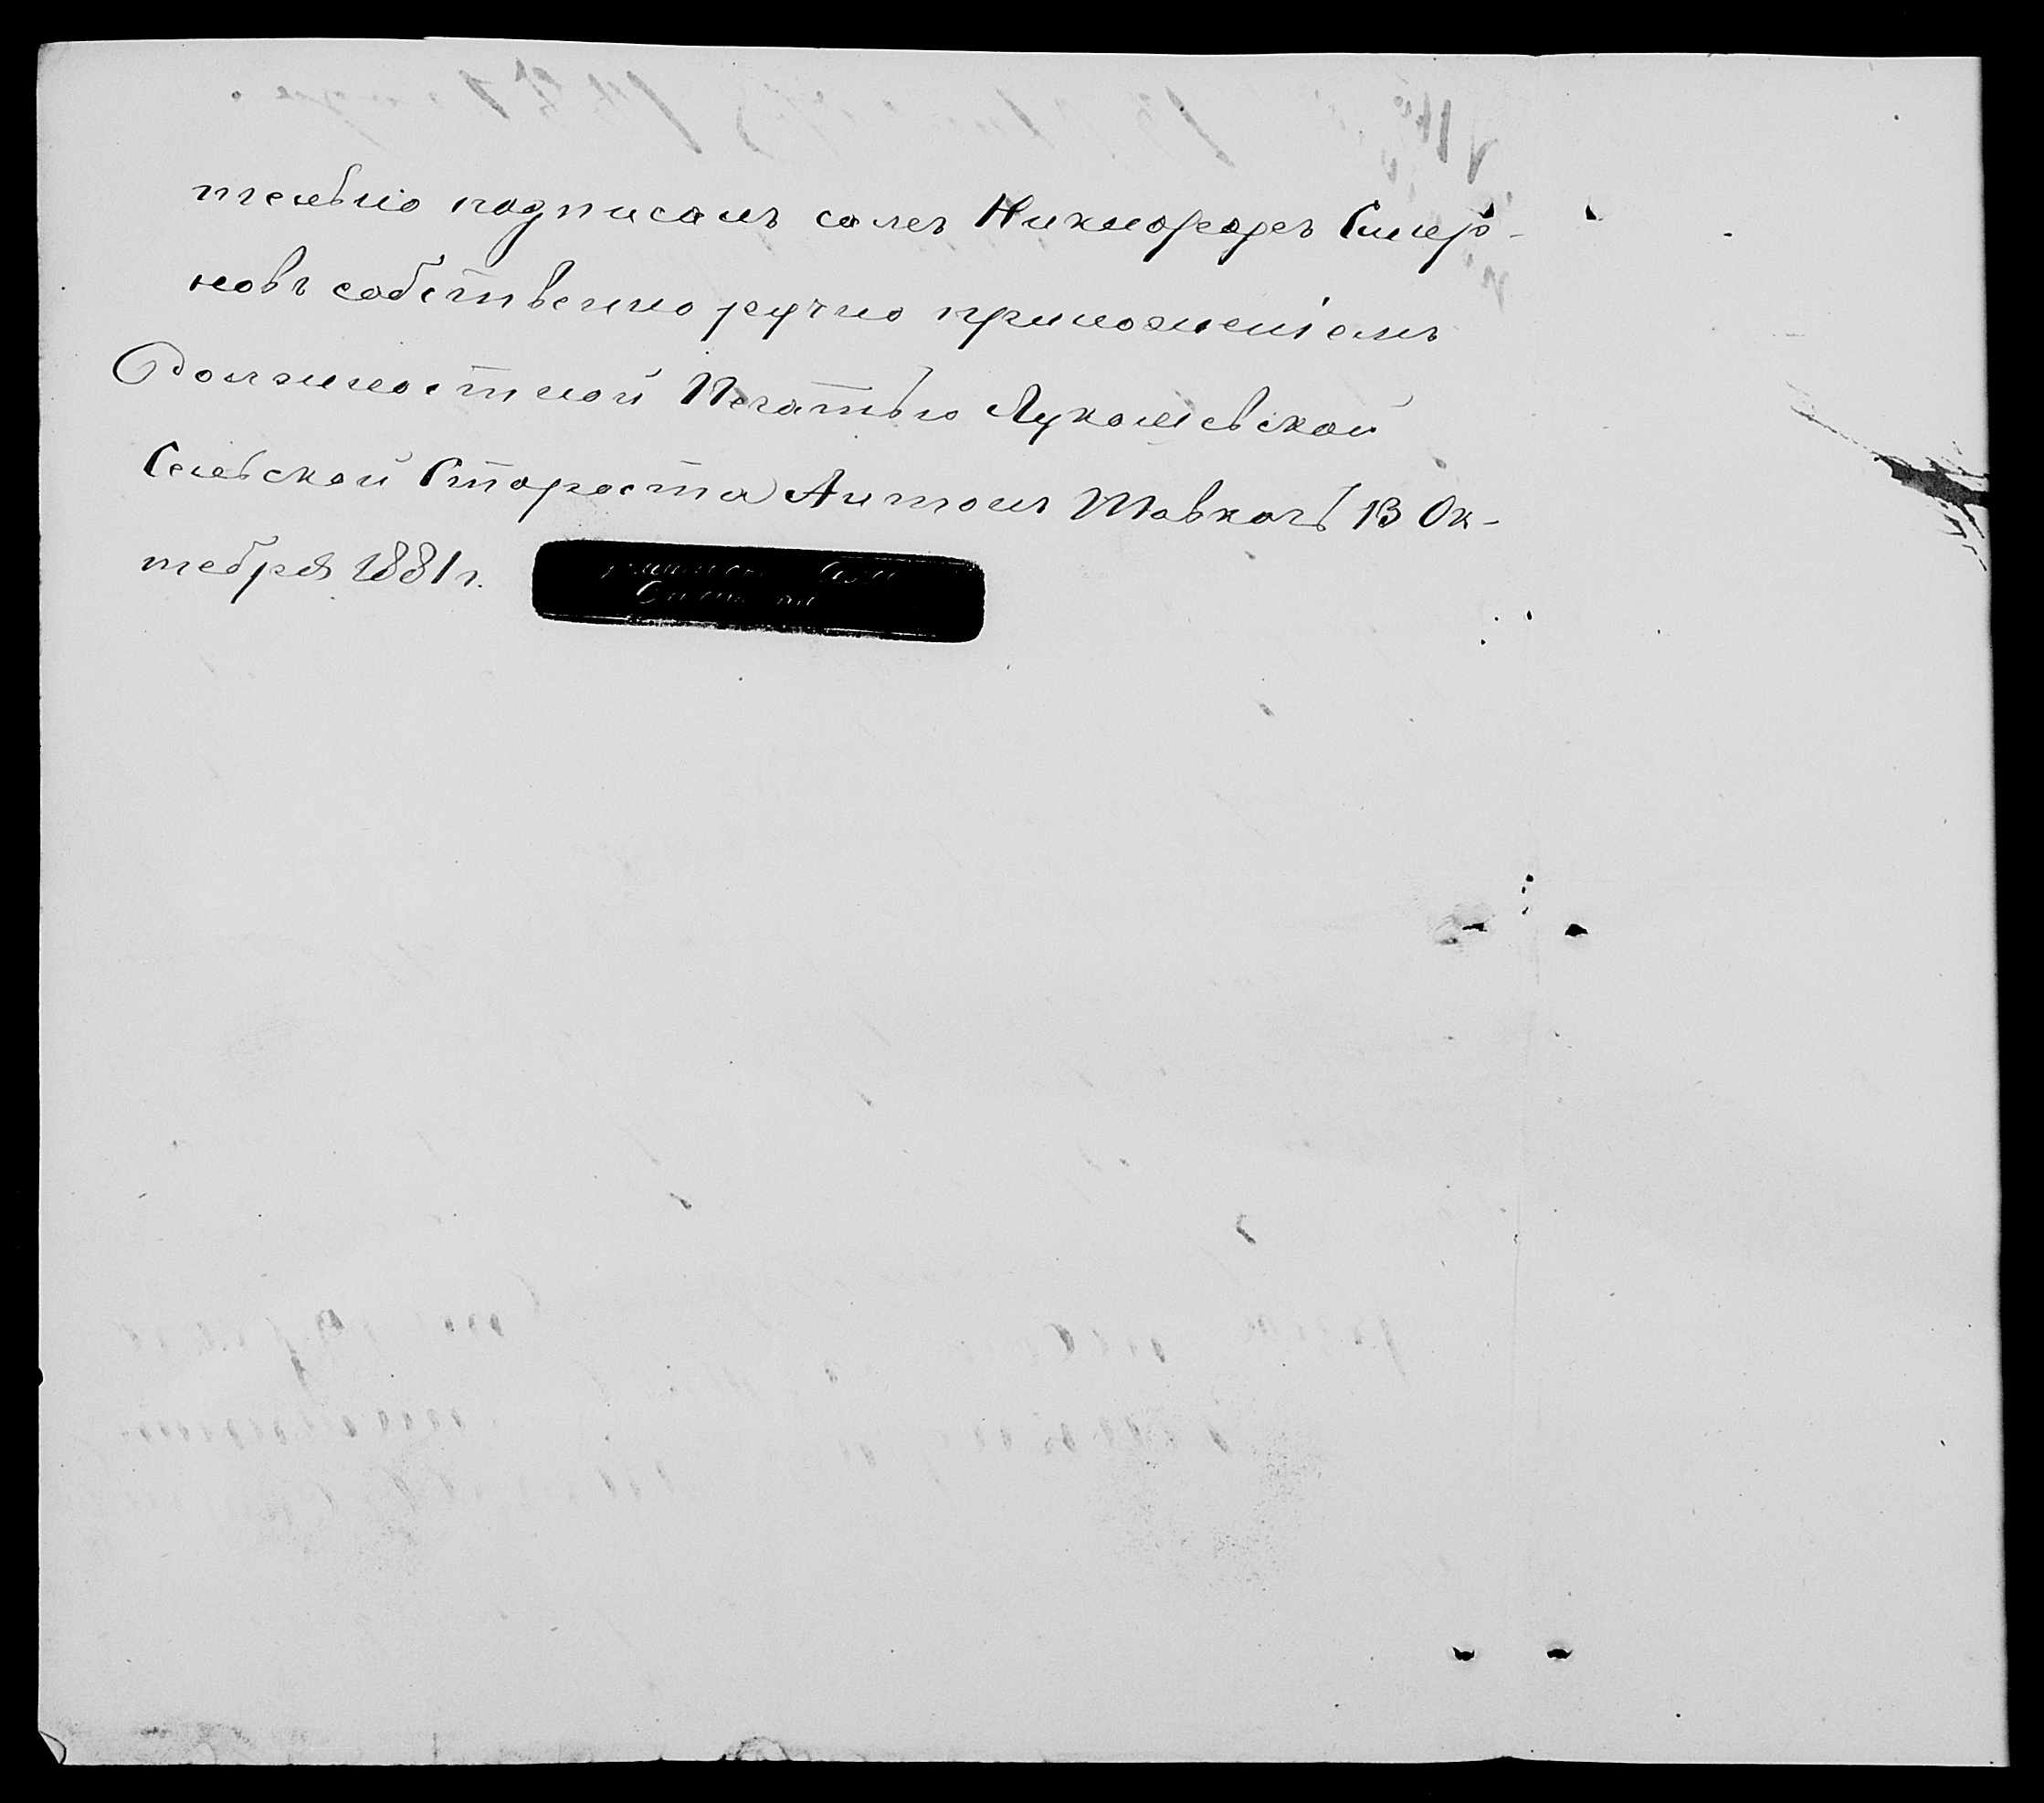 тельно подписалъ самъ Никиофоръ Смир-
новъ собственно ручно приложеніемъ
Должностной Печатью Лукашевской
Сельской Староста Антонъ Шовкалъ 13 Ок-
тебря 1881 г.